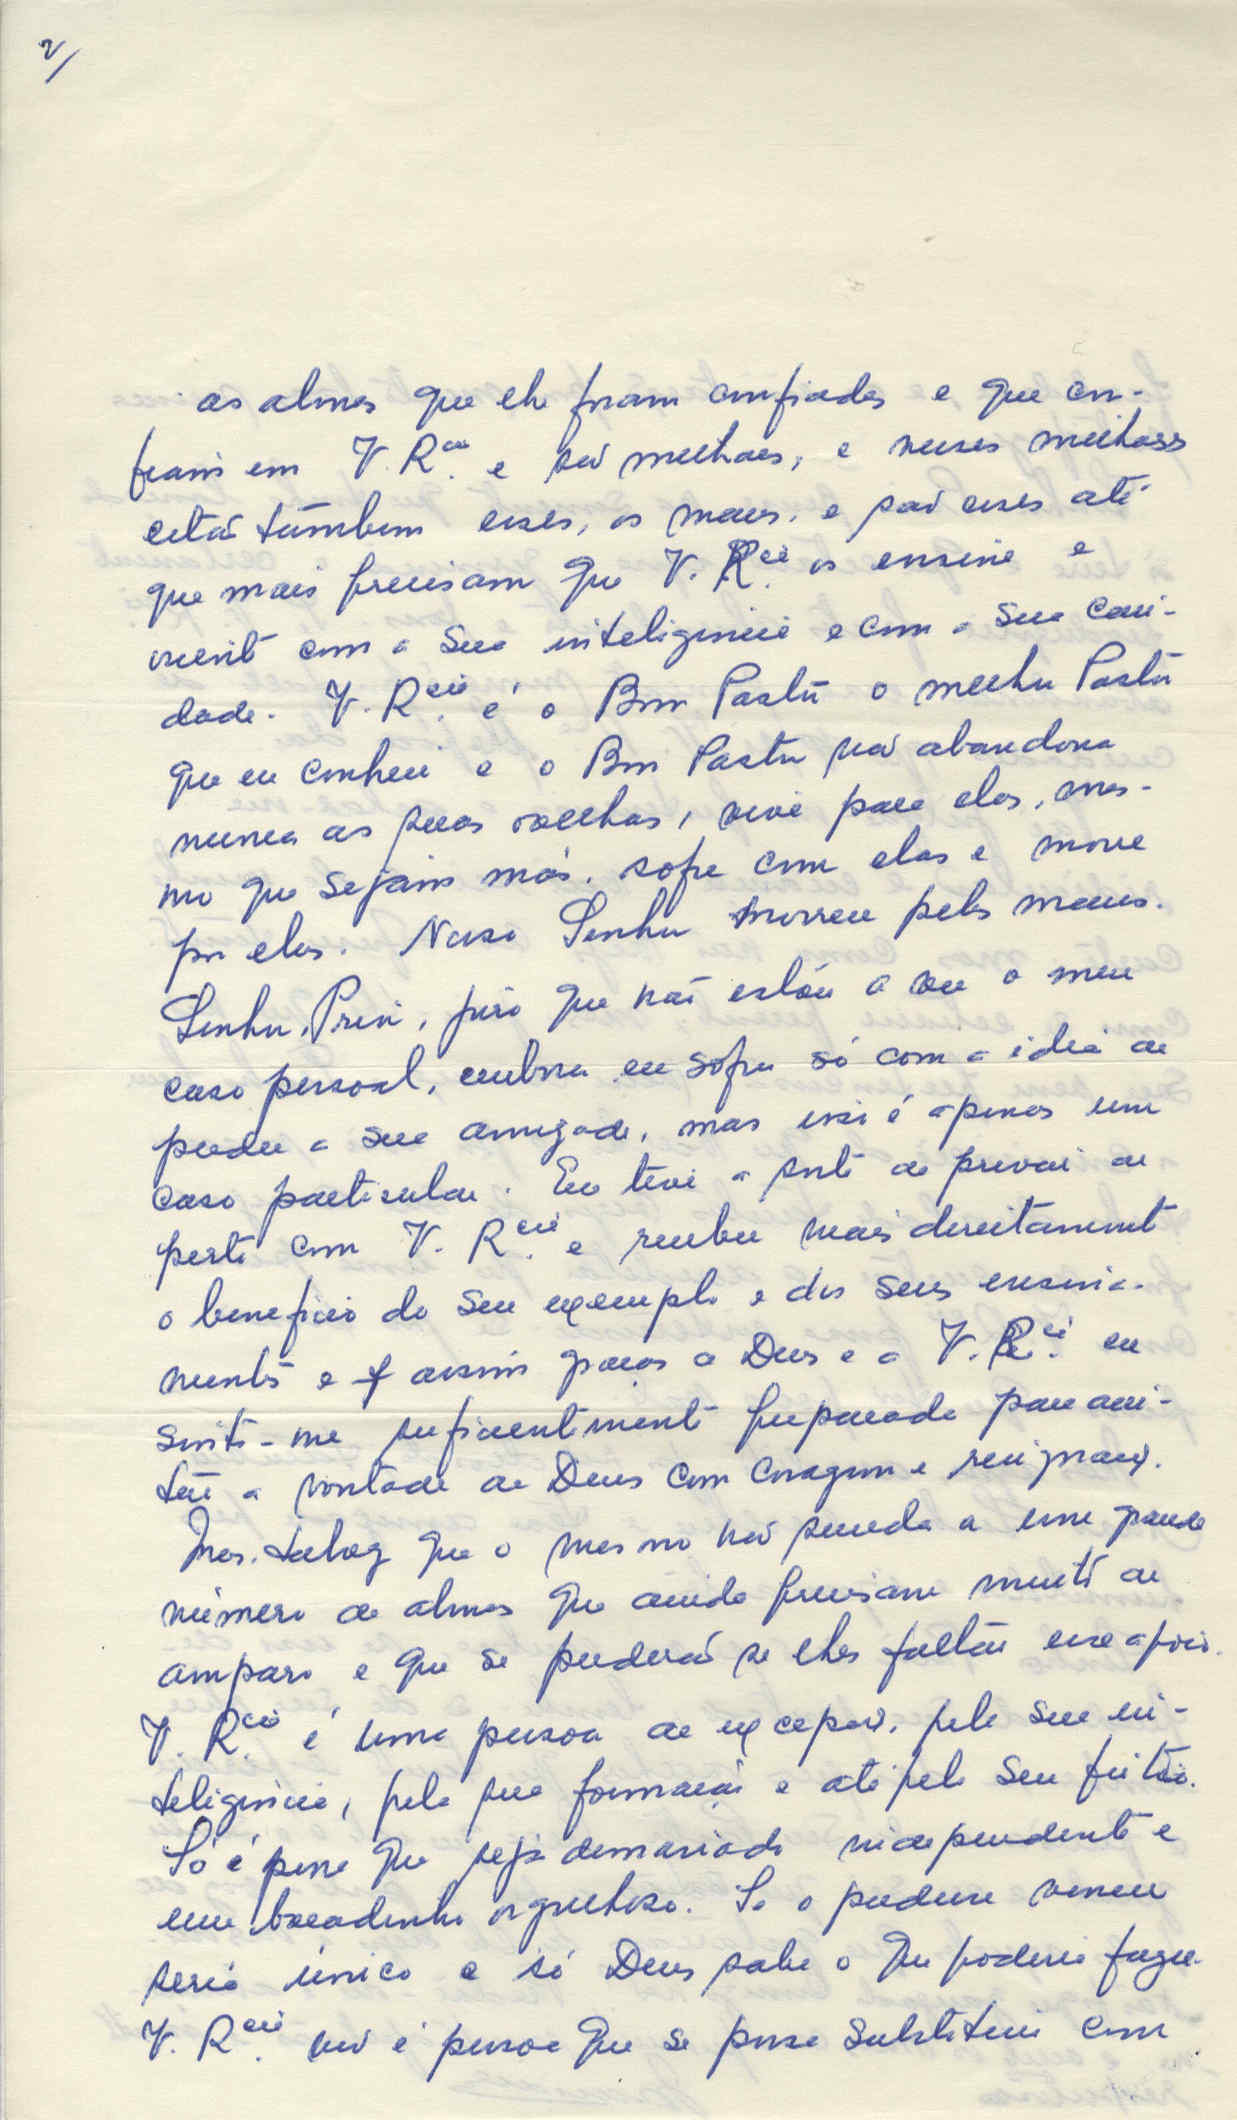 2/
as almas que lhe foram confiadas e que con-
fiam em V. Rcia. e são milhares, e nesses milhares
estão também esses, os maus, e são esses até
que mais precisam que V. Rcia. os ensine e
oriente com a sua inteligencia e com a sua cari-
dade. V. Rcia. é o Bom Pastor o melhor Pastor
que eu conheci e o Bom Pastor não abandona
nunca as suas ovelhas, vive para elas, mes-
mo que sejam más, sofre com elas e morre
por elas. Nosso Senhor morreu pelos maus.
Senhor Prior, juro que não estou a ver o meu
caso pessoal, embora eu sofra só com a ideia de
perder a sua amizade, mas isso é apenas um
caso particular. Eu tive a sorte de privar de
perto com V. Rcia. e receber mais directamente
o beneficio do seu exemplo e dos seus ensina-
mentos e assim graças a Deus e a V. Rcia. eu
sinto-me suficientemente preparada para acei-
tar a vontade de Deus com coragem e resignação.
Mas talvez que o mesmo não suceda a um grande
número de almas que ainda precisam muito de
amparo e que se perderão se lhes faltar esse apoio.
V. Rcia. é uma pessoa de excepção, pela sua in-
teligencia, pela sua formação e até pelo seu feitio.
Só é pena que seja demasiado independente e
um bocadinho orgulhoso. Se o pudesse vencer
seria único e só Deus sabe o que poderia fazer.
V. Rcia. não é pessoa que se possa substituir com